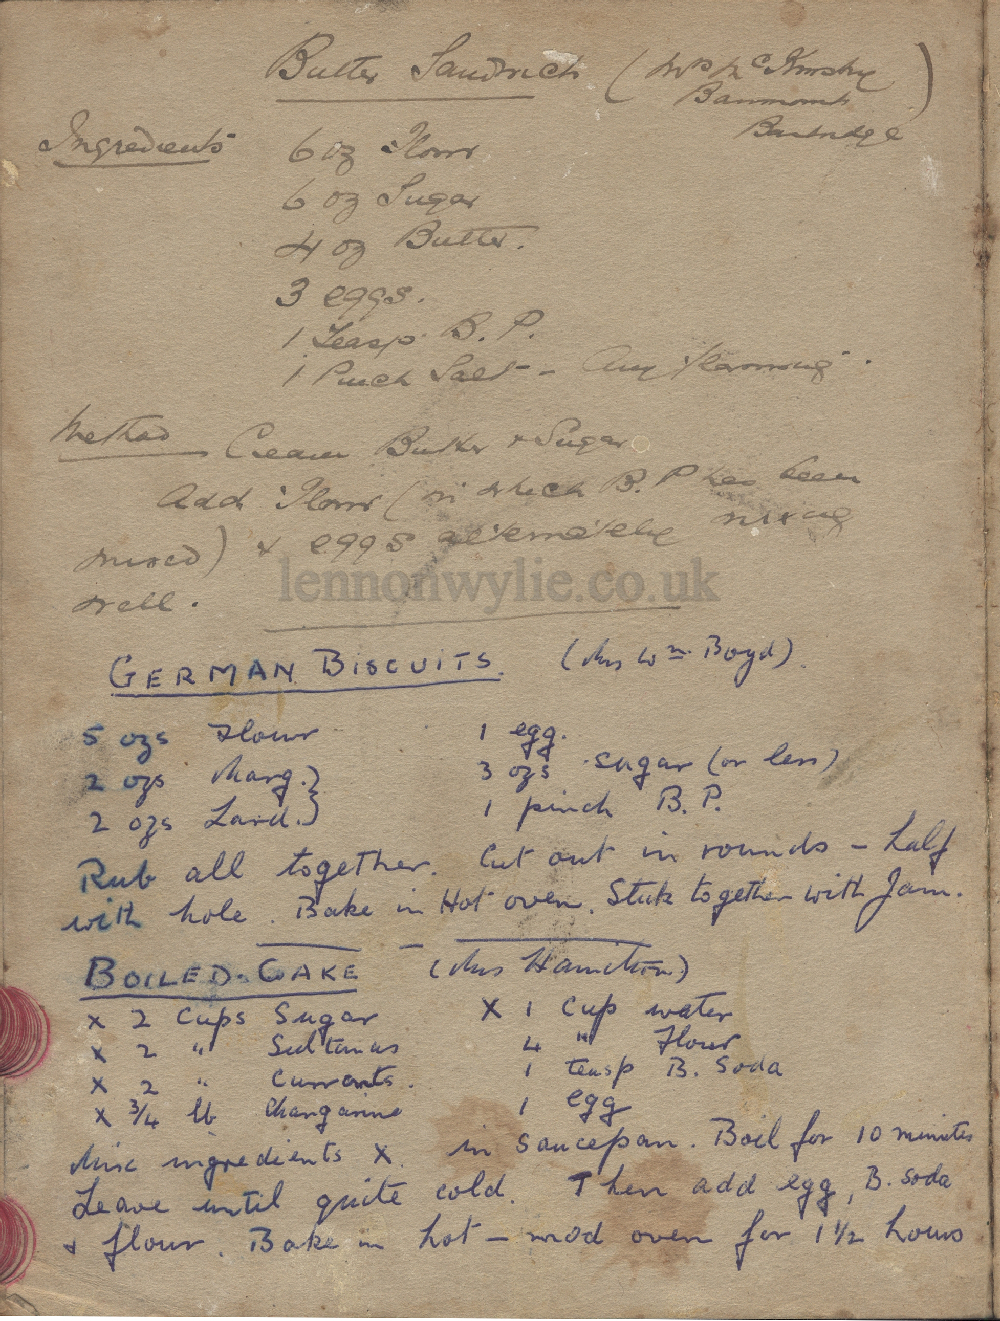 Butter Sandwich (Mrs McKinstry
Banbridge)
Ingredients 6 oz Flour
6 oz Sugar
4 oz Butter.
3 eggs.
1 Teasp B.P.
1 Pinch Salt - Any Flavouring.
Method Cream Butter & Sugar
Add Flour (in which B.P has been
mixed) & eggs alternately mixing
well.
lennonwylie.co.uk
GERMAN BISCUITS. (Mrs Wm. Boyd).
5 ozs Flour 1 egg.
2 ozs Marg.} 3 ozs sugar (or less)
2 ozs Lard.} 1 pinch B.P.
Rub all together. Cut out in rounds - half
with hole. Bake in Hot oven. Stick together with Jam.
BOILED-CAKE (Mrs Hamilton)
x 2 Cups Sugar x 1 Cup water
x 2 " Sultanas 4 " Flour
x 2 " Currants. 1 teasp B. Soda
x 3/4 lb Margarine 1 egg
Mix ingredients X. in saucepan. Boil for 10 minutes
Leave until quite cold. Then add egg, B. soda
& flour. Bake in hot - mod oven for 1 1/2 hours